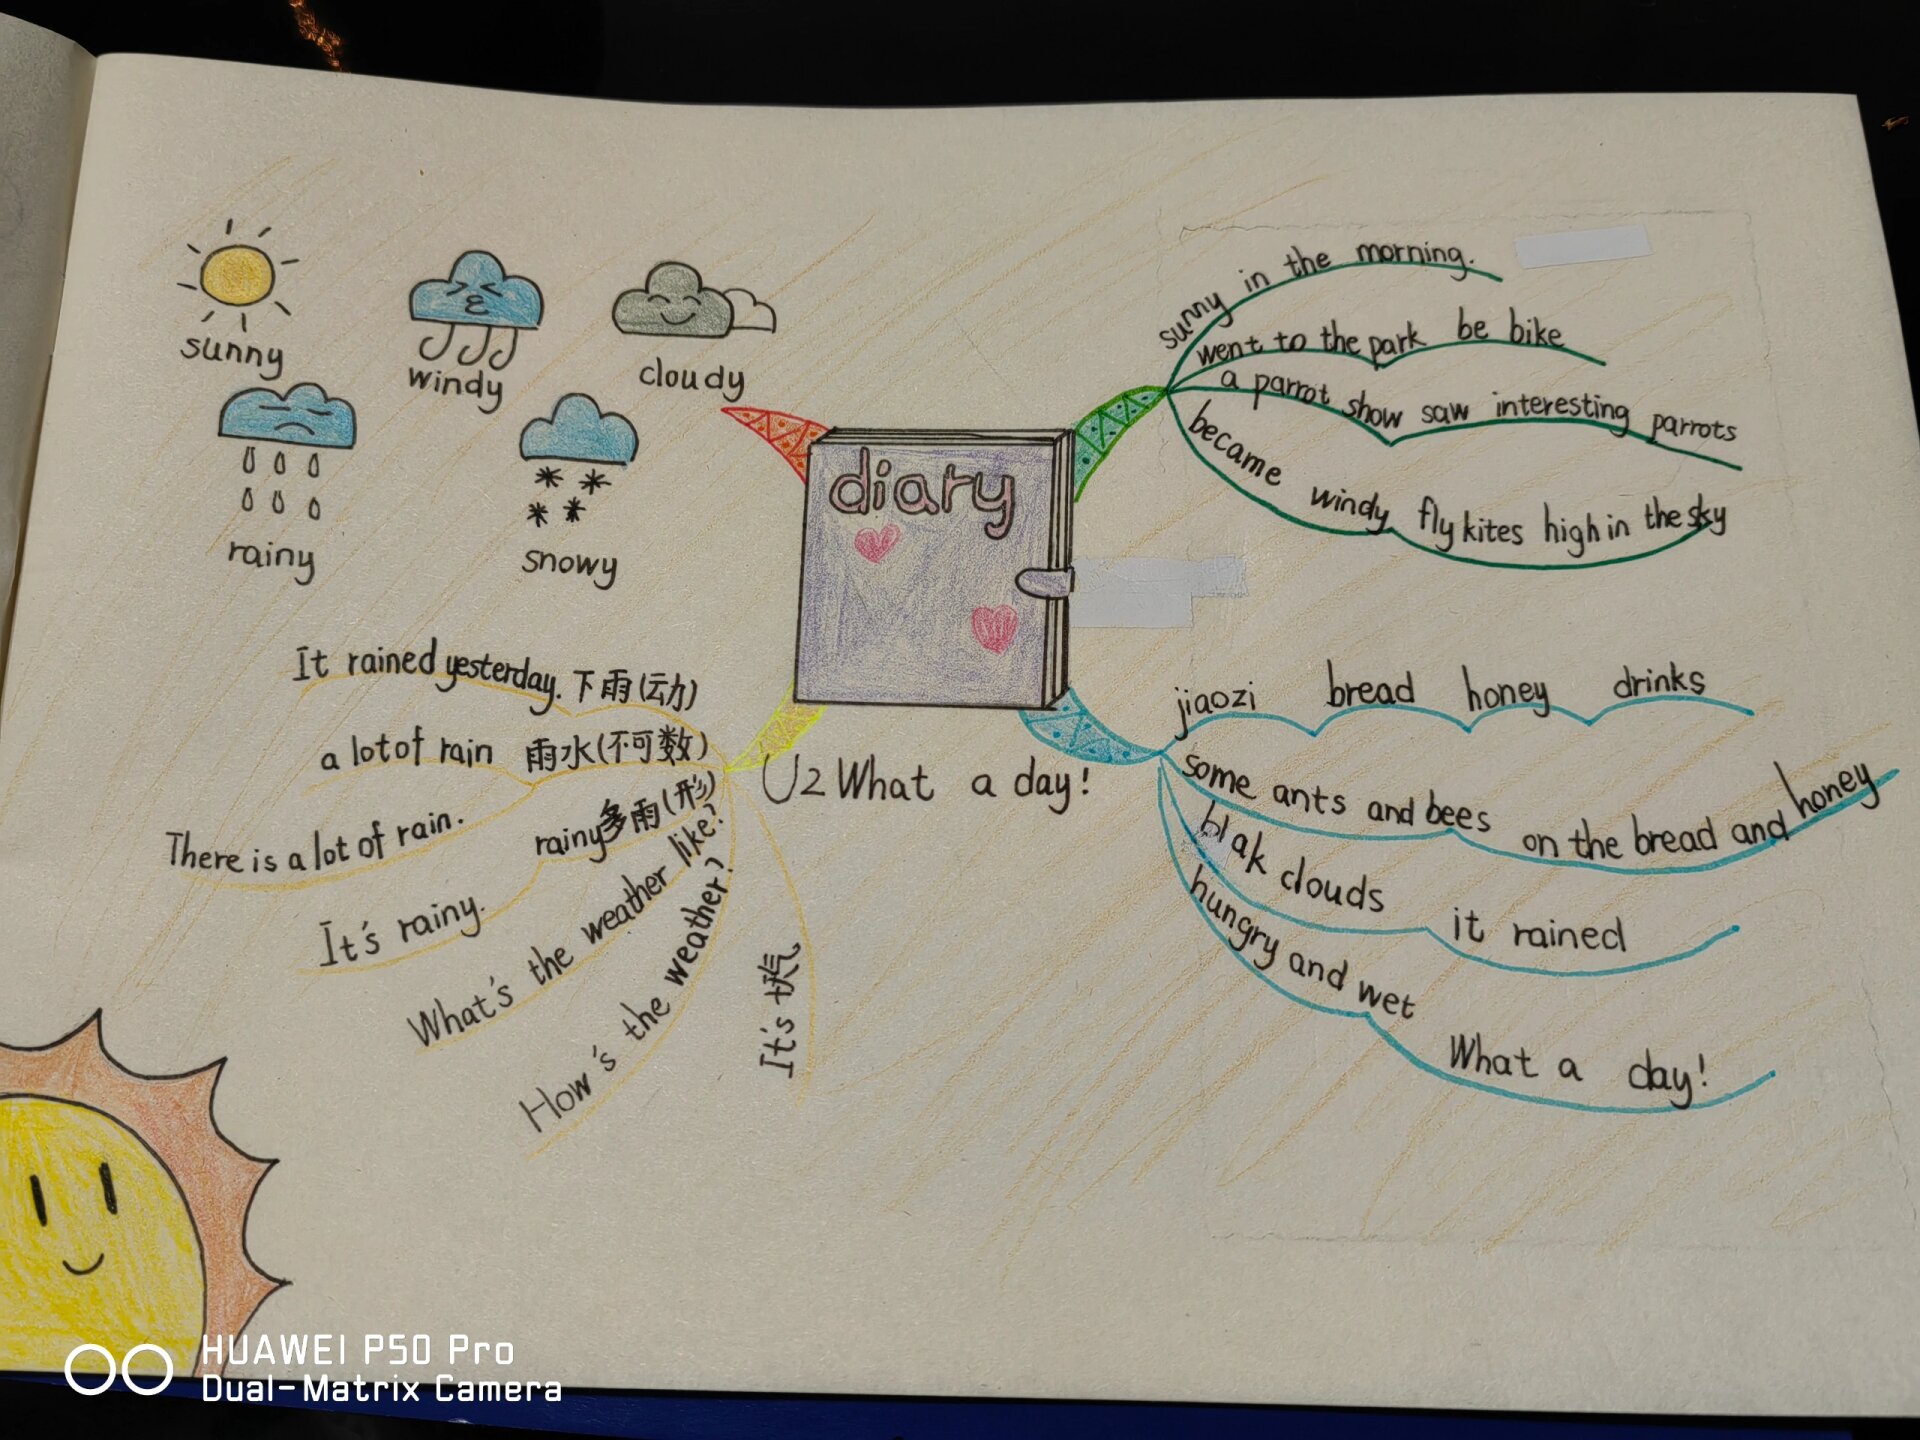 sunny
windy
cloudy
rainy
snowy
diary
U2 What a day!
sunny in the morning.
went to the park be bike
a parrot show saw interesting parrots
became windy fly kites high in the sky
It rained yesterday. 下雨(动)
a lot of rain 雨水(不可数)
There is a lot of rain.
rainy多雨(形)
It's rainy.
What's the weather like?
How's the weather?
It's
jiaozi bread honey drinks
some ants and bees on the bread and honey
blak clouds it rained
hungry and wet What a day!
HUAWEI P50 Pro
Dual-Matrix Camera